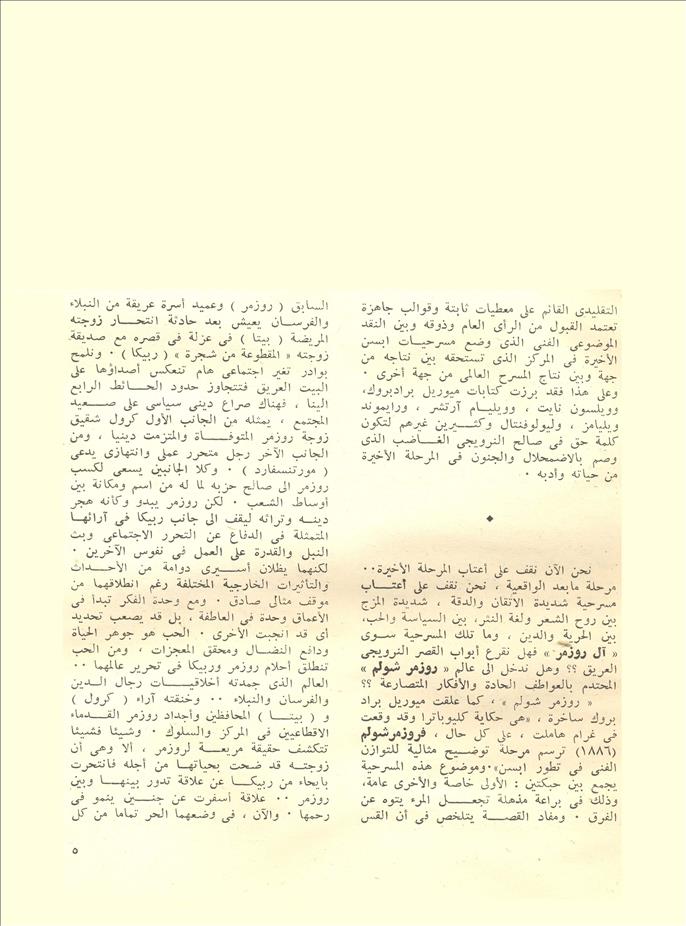 التقليدى القائم على معطيات ثابتة وقوالب جاهزة
تعتمد القبول من الرأى العام وذوقه وبين النقد
الموضوعى الفنى الذى وضع مسرحيات ابسن
الأخيرة فى المركز الذى تستحقه بين نتاجه من
جهة وبين نتاج المسرح العالمى من جهة أخرى .
وعلى هذا فقد برزت كتابات ميوريل برادبروك،
وويلسون نايت ، وويليام آرتشر ، ورايموند
ويليامز ، وليولوفنتال وكثيرين غيرهم لتكون
كلمة حق فى صالح النرويجى الغاضب الذى
وصم بالاضمحلال والجنون فى المرحلة الأخيرة
من حياته وأدبه .
◆
نحن الآن نقف على أعتاب المرحلة الأخيرة..
مرحلة مابعد الواقعية ، نحن نقف على أعتاب
مسرحية شديدة الاتقان والدقة ، شديدة المزج
بين روح الشعر ولغة النثر، بين السياسة والحب،
بين الحرية والدين ، وما تلك المسرحية سوى
« آل روزمر » فهل نقرع أبواب القصر النرويجى
العريق ؟؟ وهل ندخل الى عالم « روزمر شولم »
المحتدم بالعواطف الحادة والأفكار المتصارعة ؟؟
« روزمر شولم » ، كما علقت ميوريل براد
بروك ساخرة ، «هى حكاية كليوباترا وقد وقعت
فى غرام هاملت ، على كل حال ، فروزمرشولم
(١٨٨٦) ترسم مرحلة توضيح مثالية للتوازن
الفنى فى تطور ابسن».وموضوع هذه المسرحية
يجمع بين حبكتين : الأولى خاصة والأخرى عامة،
وذلك فى براعة مذهلة تجعل المرء يتوه عن
الفرق . ومفاد القصة يتلخص فى أن القس
السابق ( روزمر ) وعميد أسرة عريقة من النبلاء
والفرسان يعيش بعد حادثة انتحار زوجته
المريضة ( بيتا ) فى عزلة فى قصره مع صديقة
زوجته « المقطوعة من شجرة » ( ربيكا ) . ونلمح
بوادر تغير اجتماعى هام تنعكس أصداؤها على
البيت العريق فتتجاوز حدود الحائط الرابع
الينا ، فهناك صراع دينى سياسى على صعيد
المجتمع ، يمثله من الجانب الأول كرول شقيق
زوجة روزمر المتوفاة والمتزمت دينيا ، ومن
الجانب الآخر رجل متحرر عملى وانتهازى يدعى
( مورتنسفارد ) . وكلا الجانبين يسعى لكسب
روزمر الى صالح حزبه لما له من اسم ومكانة بين
أوساط الشعب . لكن روزمر يبدو وكأنه هجر
دينه وتراثه ليقف الى جانب ربيكا فى آرائها
المتمثلة فى الدفاع عن التحرر الاجتماعى وبث
النبل والقدرة على العمل فى نفوس الآخرين .
لكنهما يظلان أسيرى دوامة من الأحداث
والتأثيرات الخارجية المختلفة رغم انطلاقهما من
موقف مثالى صادق . ومع وحدة الفكر تبدأ فى
الأعماق وحدة فى العاطفة ، بل قد يصعب تحديد
أى قد انجبت الأخرى . الحب هو جوهر الحياة
ودافع النضال ومحقق المعجزات ، ومن الحب
تنطلق أحلام روزمر وربيكا فى تحرير عالمهما ..
العالم الذى جمدته أخلاقيات رجال الدين
والفرسان والنبلاء .. وخنقته آراء ( كرول )
و ( بيتا ) المحافظين وأجداد روزمر القدماء
الاقطاعيين فى المركز والسلوك . وشيئا فشيئا
تتكشف حقيقة مريعة لروزمر ، ألا وهى أن
زوجته قد ضحت بحياتها من أجله فانتحرت
بايحاء من ربيكا عن علاقة تدور بينها وبين
روزمر .. علاقة أسفرت عن جنين ينمو فى
رحمها . والآن ، فى وضعهما الحر تماما من كل
٥